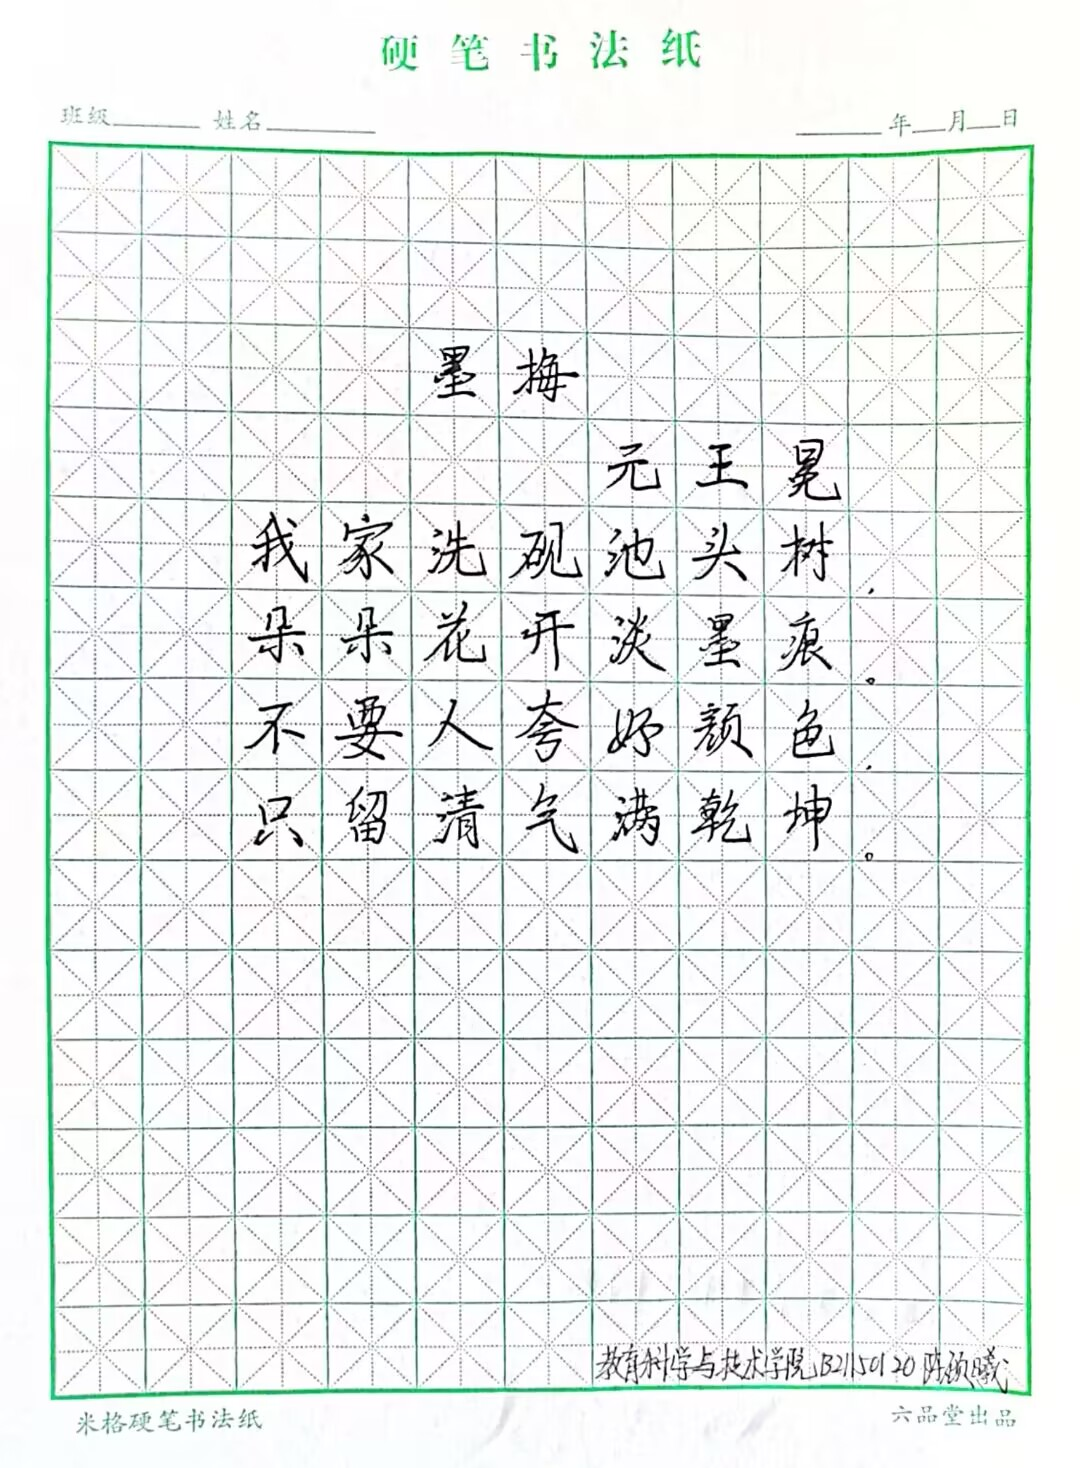 硬笔书法纸
班级 姓名 年 月 日
墨梅
元 王 冕
我家洗砚池头树，
朵朵花开淡墨痕。
不要人夸好颜色，
只留清气满乾坤。
教育科学与技术学院 B21150120 陈颂曦
米格硬笔书法纸 六品堂出品